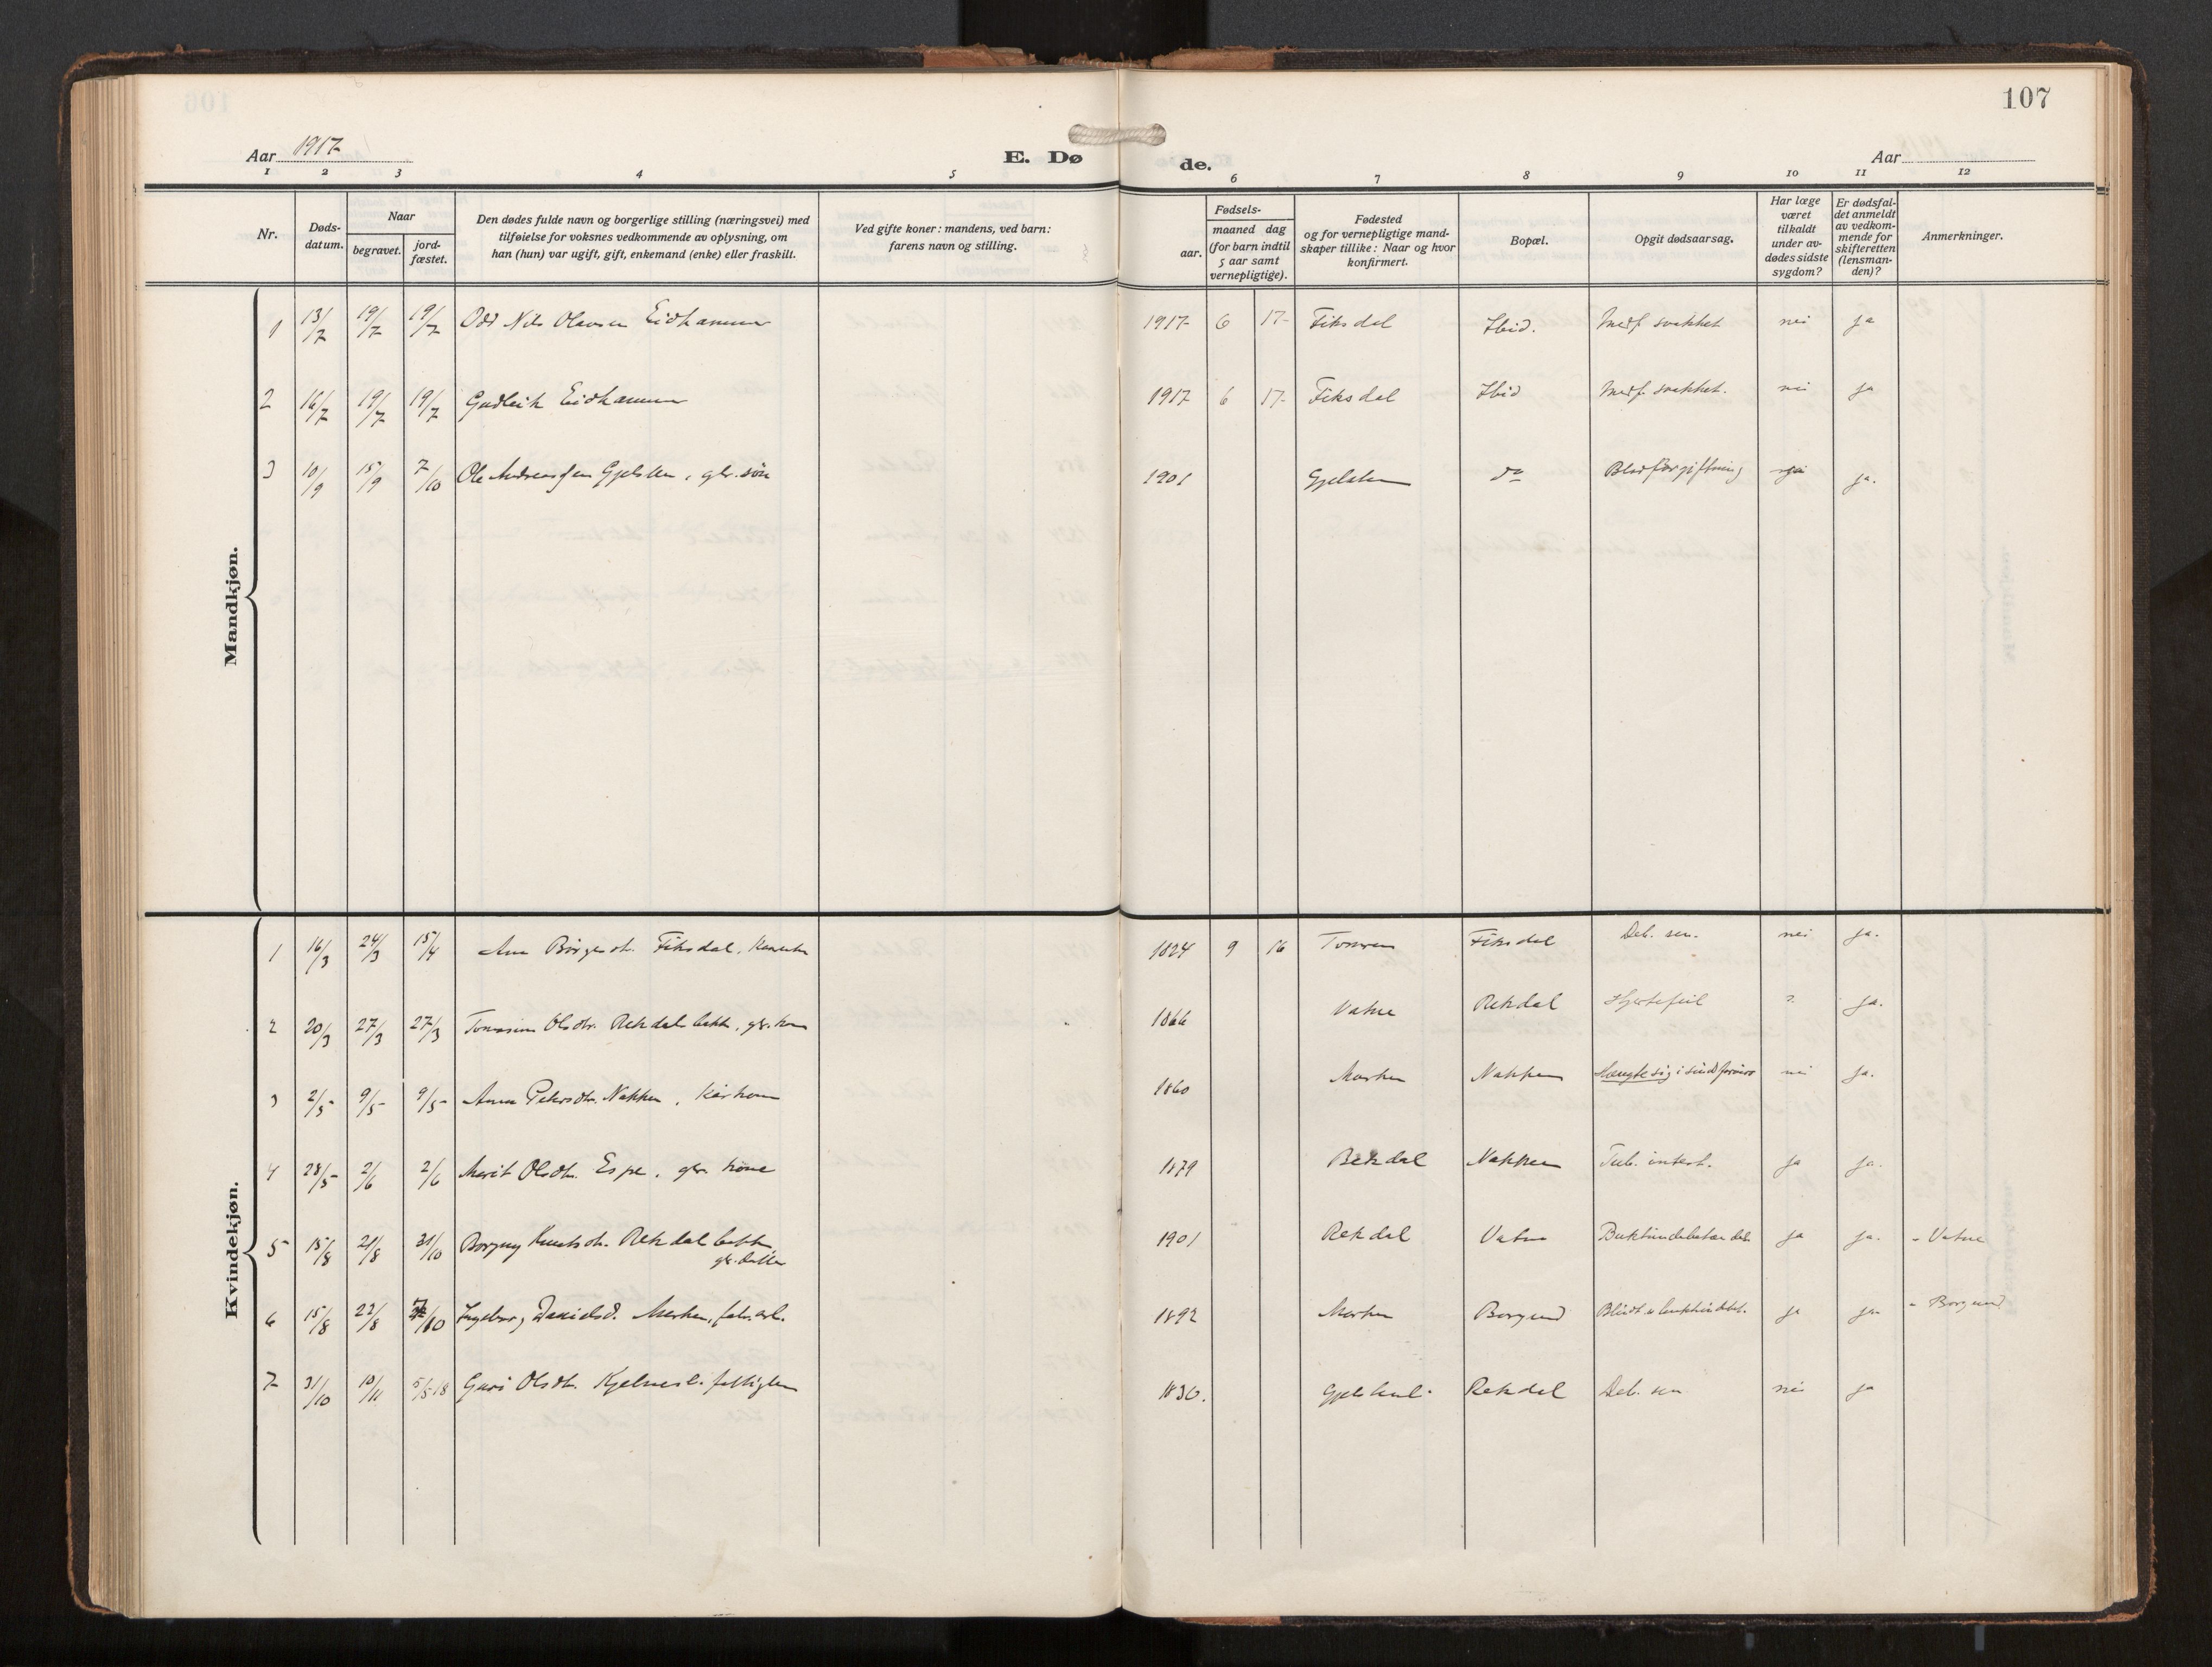 107
Aar 1917
E. Dø
de.
Aar
1 2 3 4 5 6 7 8 9 10 11 12
Nr.
Døds-
datum.
Naar
begravet.
jord-
fæstet.
Den dødes fulde navn og borgerlige stilling (næringsvei) med
tilføielse for voksnes vedkommende av oplysning, om
han (hun) var ugift, gift, enkemand (enke) eller fraskilt.
Ved gifte koner: mandens, ved barn:
farens navn og stilling.
Fødsels-
aar.
maaned dag
(for barn indtil
5 aar samt
vernepligtige).
Fødested
og for vernepligtige mand-
skaper tillike: Naar og hvor
konfirmert.
Bopæl.
Opgit dødsaarsag.
Har læge
været
tilkaldt
under av-
dødes sidste
sygdom?
Er dødsfal-
det anmeldt
av vedkom-
mende for
skifteretten
(lensman-
den)?
Anmerkninger.
Mandkjøn.
1 13/7 19/7 19/7 Odd Nils Olavsen Eidhammer 1917 6 17 Fiksdal Ibid. Medf. svakhet nei ja
2 16/7 19/7 19/7 Gudleik Eidhammer 1917 6 17 Fiksdal Ibid Medf. svakhet. nei ja
3 10/9 15/9 7/10 Ole Andreassen Gjelsten, gbr. søn 1901 Gjelsten do Blodforgiftning ja.
Kvindekjøn.
1 16/3 24/3 15/4 Ane Børgesdtr. Fiksdal, 1824 9 16 Fiksdal Deb. sen. nei ja.
2 20/3 27/3 27/3 Olsdtr. Rekdalsbakk, gbr. kone 1866 Vatne Rekdal Hjertefeil ? ja.
3 2/5 9/5 9/5 Anna Petersdtr. Nakken, 1860 Morken Nakken Hængte sig i nei ja.
4 28/5 2/6 2/6 Marit Olsdtr. Espe, gbr. kone 1879 Rekdal Nakken Tub. intest. ja ja.
5 15/8 21/8 31/10 Borgny Knutsdtr. Rekdalbakk, 1901 Rekdal Vatne ja ja. - Vatne
gbr. datter
6 15/8 22/8 7/10 Ingeborg Danielsd. Morken, fabr. arb. 1892 Morken Borgund ja ja - Borgund
7 31/10 10/11 5/5 18 Guri Olsdtr. Kjelnesli. fattiglem 1830. Rekdal Deb. sen nei ja